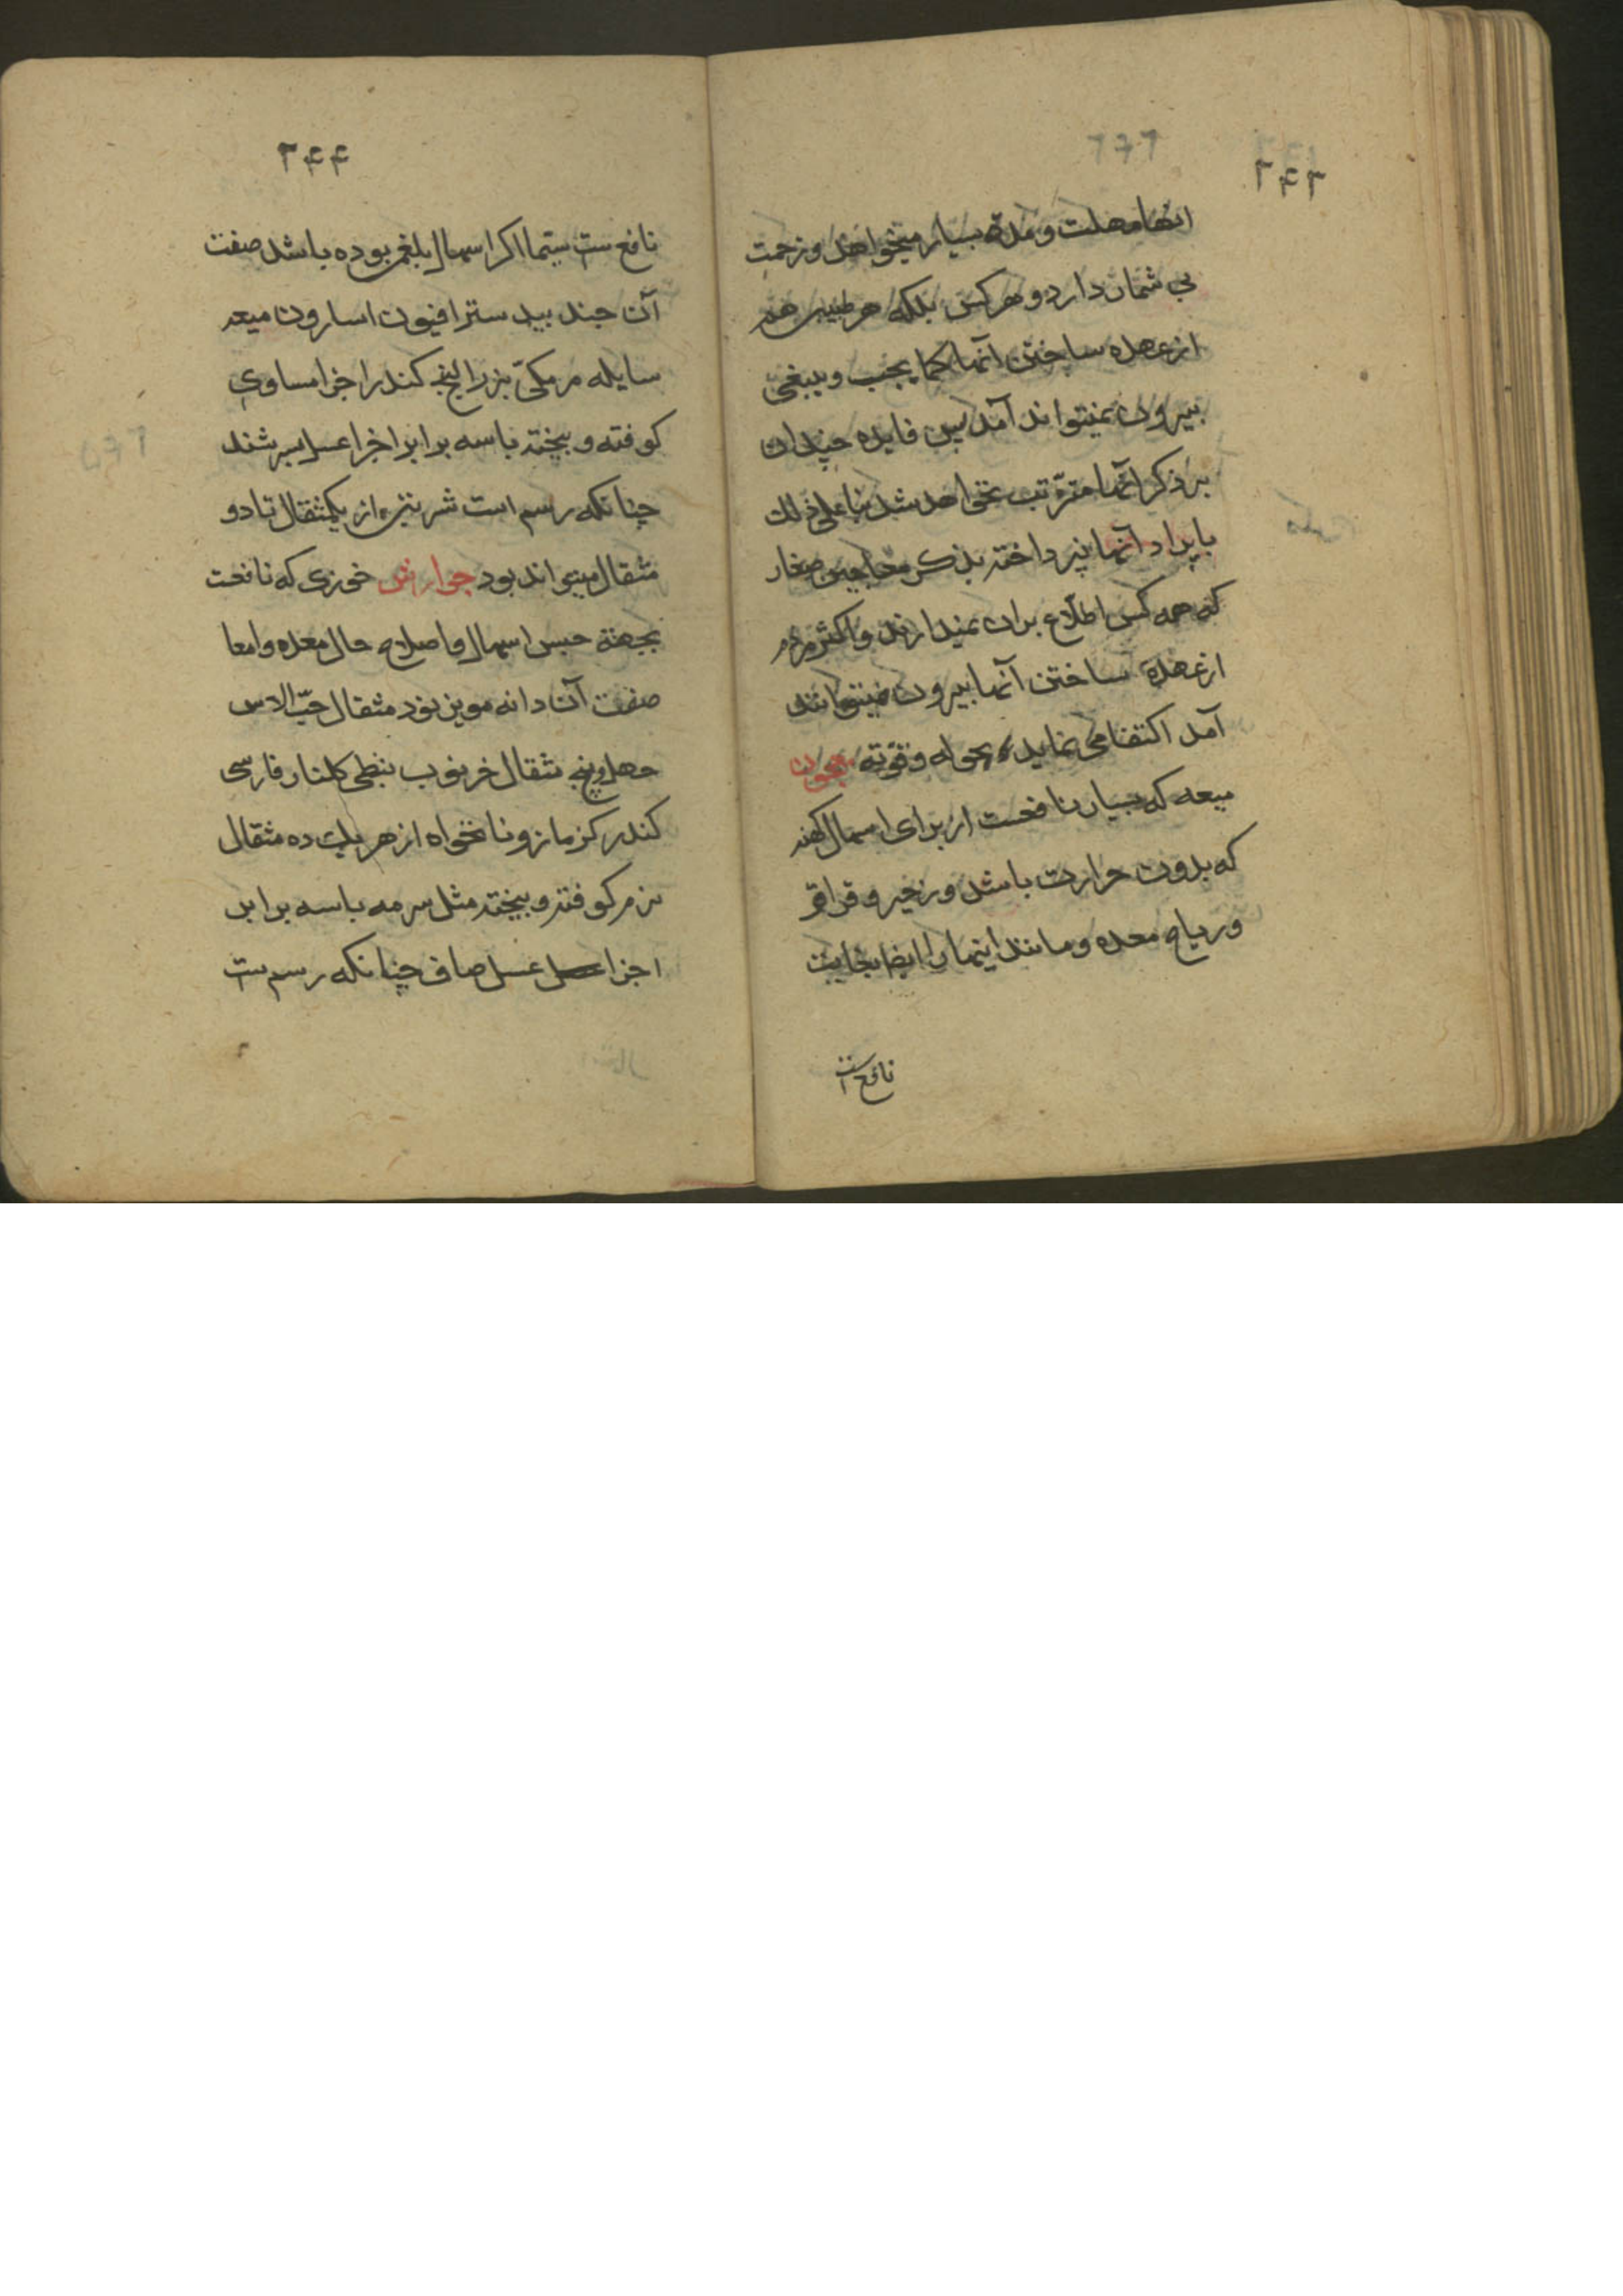 ۲۴۳
انها مهلت و مدة بسیار میخواهد و زحمت
بی شمار دارد و هر کس بلکه هر طبیبی هم
از عهده ساختن آنها کما یجب و ینبغی
بیرون نمیتواند آمد پس فایده چندان
بر ذکر آنها مترتب نخواهد شد بنا علی ذلك
بایراد آنها نپرداخته بذکر معاجین صغار
که همه کس اطلاع بران نمیدارند و اکثر مردم
از عهدهٔ ساختن آنها بیرون میتوانند
آمد اکتفا می نماید بحوله و قوّته معجون
میعه که بسیار نافعست از برای اسهال کهنه
که بدون حرارت باشد و زخیر و قراقر
و ریاح معده و مانند اینها را ایضا بغایت
نافع است
۲۴۴
نافع ست سیّما اکر اسهال بلغمی بوده باشد صفت
آن جند بیدستر افیون اسارون میعه
سایله مر مکیّ بزر البنج کندر اجزا مساوی
کوفته و بیخته با سه برابر اجزا عسل بسرشند
چنانکه رسم است شربتی از یکمثقال تا دو
مثقال میتواند بود جوارش خوزی که نافعست
بجهتة حبس اسهال و اصلاح حال معده و امعا
صفت آن دانه مویز نود مثقال حبّ الاس
چهل و پنج مثقال خرنوب نبطی کلنار فارسی
کندر کزمازو نانخواه از هر یك ده مثقال
نرم کوفته و بیخته مثل سرمه با سه برابر
اجزا عسل صاف چنانکه رسم ست